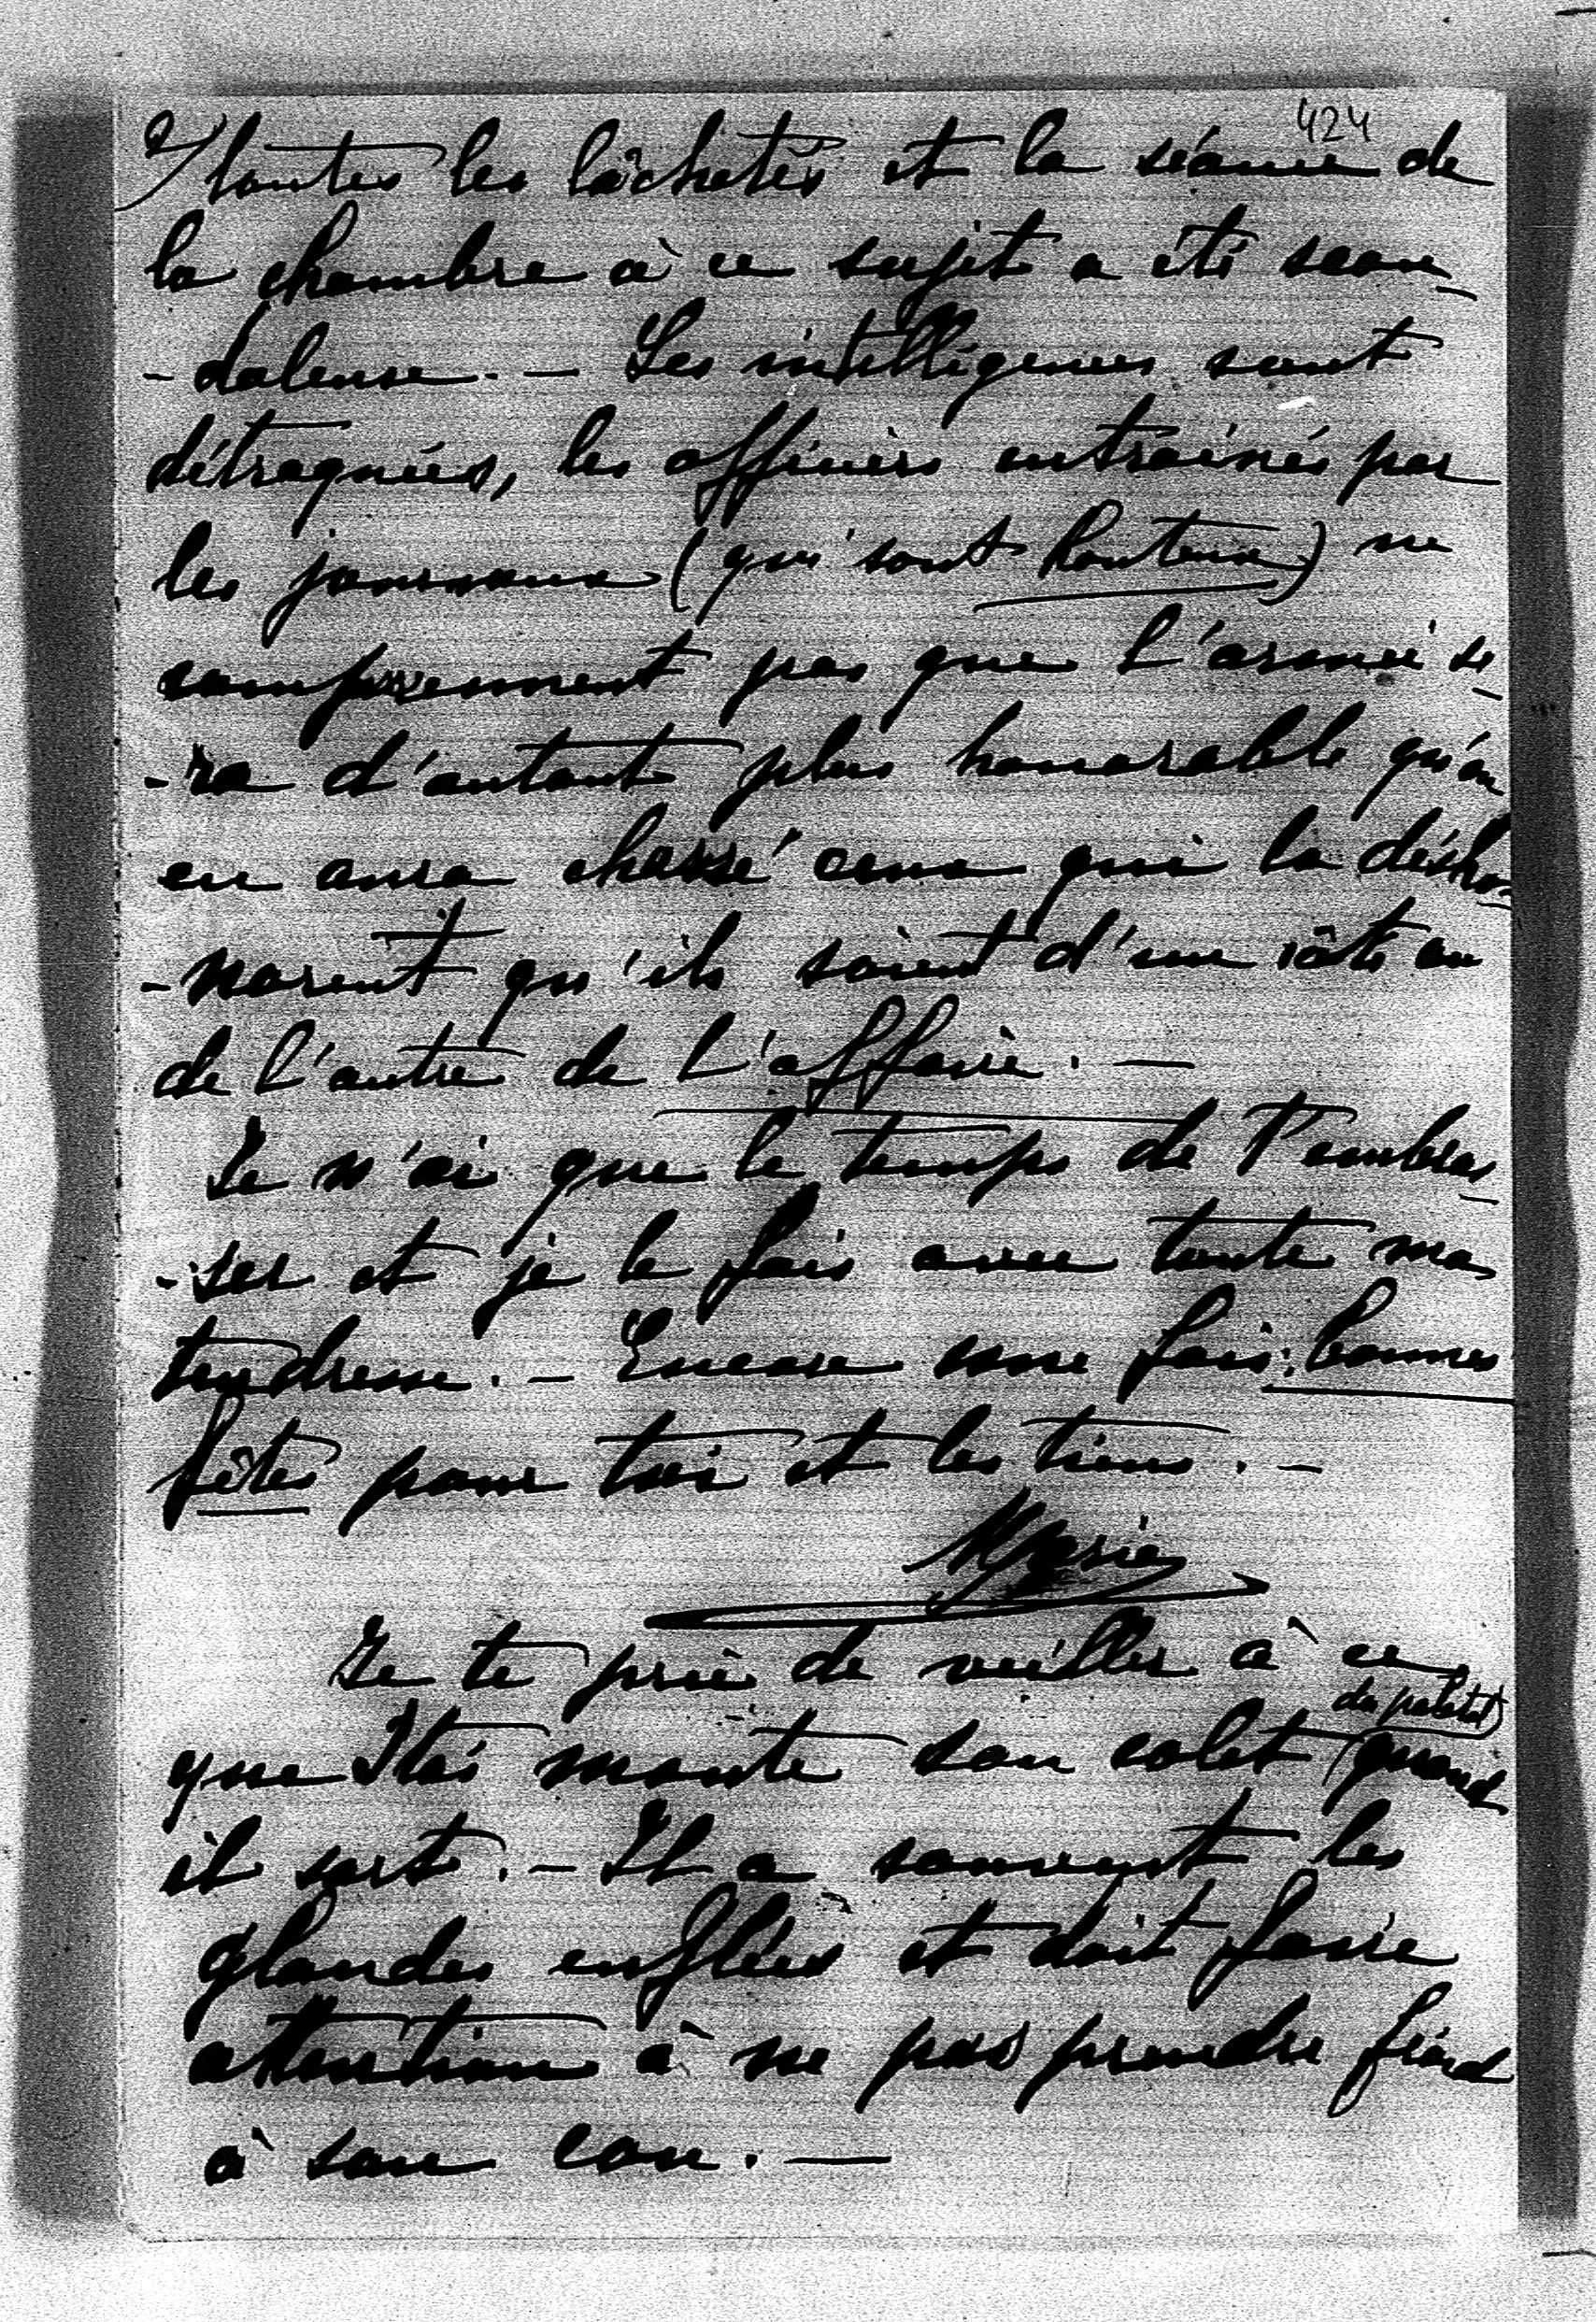 424
2/ toutes les lâchetés et la séance de
la chambre à ce sujet a été scan-
-daleuse. — Les intelligences sont
détraquées, les officiers entrainés par
les journaux (qui sont honteux) ne
comprennent pas que l'armée se-
-ra d'autant plus honorable qu'on
en aura chassé ceux qui la désho-
-norent qu'ils soient d'un côté ou
de l'autre de l'affaire. —
Je n'ai que le temps de t'embras-
-ser et je le fais avec toute ma
tendresse. — Encore une fois: bonnes
fêtes pour toi et les tiens. —
Marie
Je te prie de veiller à ce
que monte son colet (du paletot) quand
il sort. — Il a souvent les
glandes enflées et doit faire
attention à ne pas prendre froid
à son cou. —